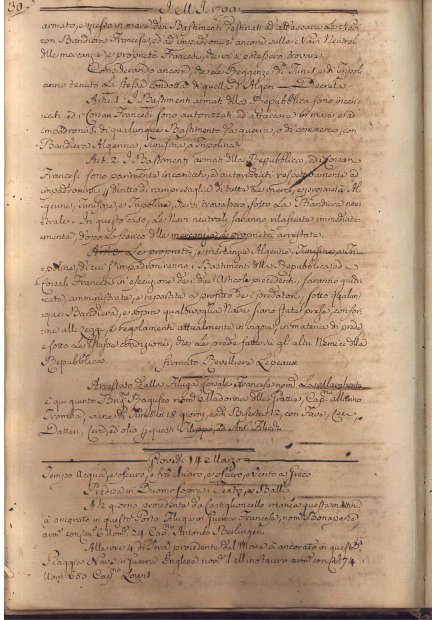 30. I M I 1799.
armato, e messo in mare dei Bastimenti destinati ad attaccare le Navi
con Bandiera Francese, ed ad impadronirsi ancora sulle Navi Neutrali
delle mercanzie, e proprietà Francesi, che vi potessero trovare.
Considerando ancora, che le Reggenze di Tunis, e di Tripoli
anno tenuto la stessa condotta di quella di Algeri Decreta
Art. 1. I Bastimenti armati della Repubblica sono incari-
cati, ed i Corsari Francesi sono autorizzati ad attaccare in mare, e ad
impadronirsi di qualunque Bastimento da guerra, o di commercio, con
Bandiera Algerina, Tunisina, e Tripolina.
Art. 2. I Bastimenti armati della Repubblica, ed i Corsari
Francesi sono parimente incaricati, ed autorizzati rispettivamente ad
impadronirsi di tutte le merci, e proprietà Al-
gerine, Tunisine, e Tripoline, che si trovassero sotto la Bandiera neu-
trale. In questo caso, le Navi neutrali saranno rilasciate immediata-
mente, dopo scarico delle mercanzie, e proprietà arrestate.
Art. 3. Le proprietà, e mercanzie Algerine, Tunisine, e Tri-
poline, di cui s'impadroniranno i Bastimenti della Repubblica, ed i
Corsali Francesi in esecuzione dei due Articoli precedenti, saranno giudi-
cate, amministrate, e repartite a profitto dei predatori, sotto qualun-
que Bandiera, e sopra qualsivoglia Nave siano state prese, confor-
me alle Leggi, e regolamenti attualmente in vigore, in materia di prede,
e sotto le stesse condizioni, che le prede fatte su gli altri Nemici della
Repubblica. firmato Revelliere Lepeaux
Arrestato dalla Feluga Corsale Francese nom. La Margherita
è qui giunto Brig. Raguseo nom. la Madonna delle Grazie, Cap.
viene di 18 giorni, e di Biserta 12, con Fave,
Datteri, Cera, ed olio
Giovedì 14 Marzo
Tempo Acqua, e oscuro, e frà chiaro, e oscuro, e Vento a Greco
Prosa in Buonumore in Teatro, e Balli.
A 12 giorno procedente da Castiglioncello mania questa mattina
à ancorato in questo Porto Felugo in Guerra Francese, nom. Bonaparte
arm. Con Can. 6 Uom. 24 Cap. Antonio Berlingeri
Alle ore 4 di sera procedente dal Mare à ancorato in questa
Piaggia Nave in Guerra Inglese nom. arm. Con Can. 74
Uom. 650 Cap.no Louis